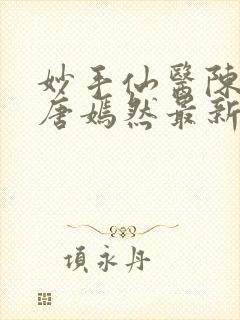 妙手仙醫陳
唐嫣然最新
項永丹